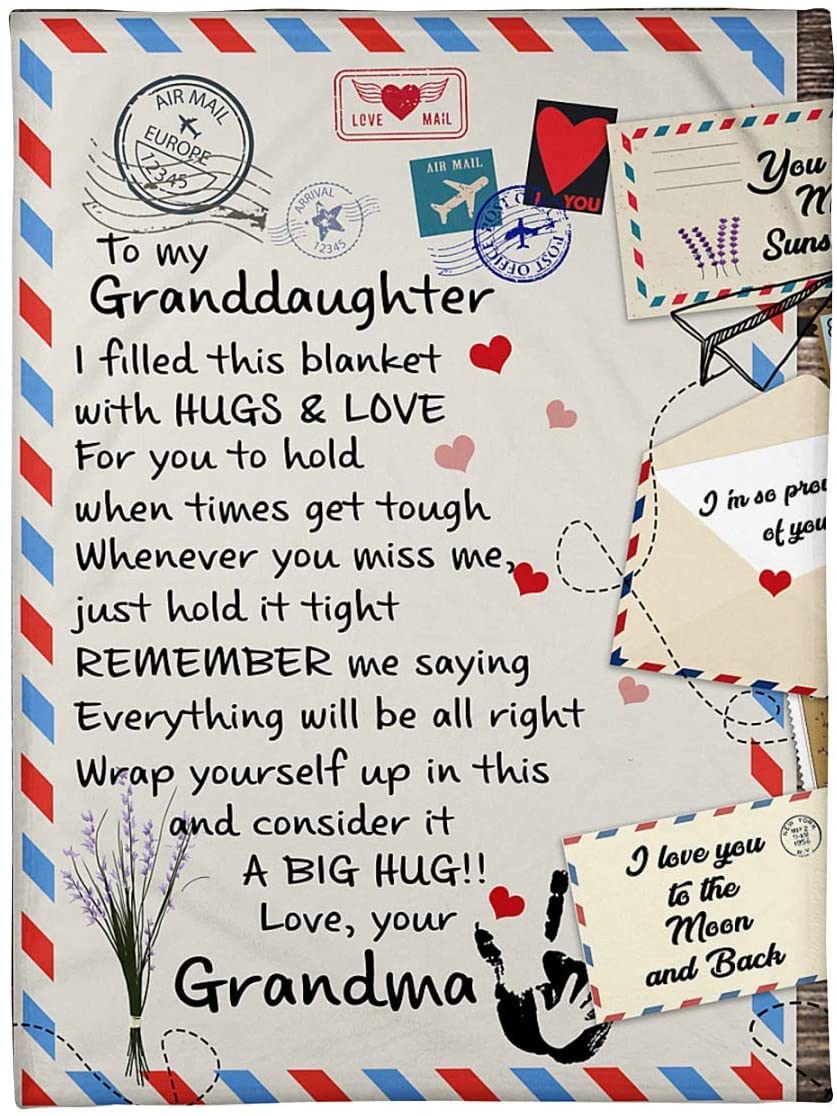 AIR MAIL
EUROPE
12345
LOVE MAIL
AIR MAIL
I YOU
ARRIVAL
12345
POST OFFICE
POST OFFICE
You
M
Suns
To my
Granddaughter
I filled this blanket
with HUGS & LOVE
For you to hold
when times get tough
Whenever you miss me,
just hold it tight
REMEMBER me saying
Everything will be all right
Wrap yourself up in this
and consider it
A BIG HUG!!
Love, your
Grandma
I'm so prou
of you
I love you
to the
Moon
and Back
NEW YORK
MAY 2
1956
N.Y.